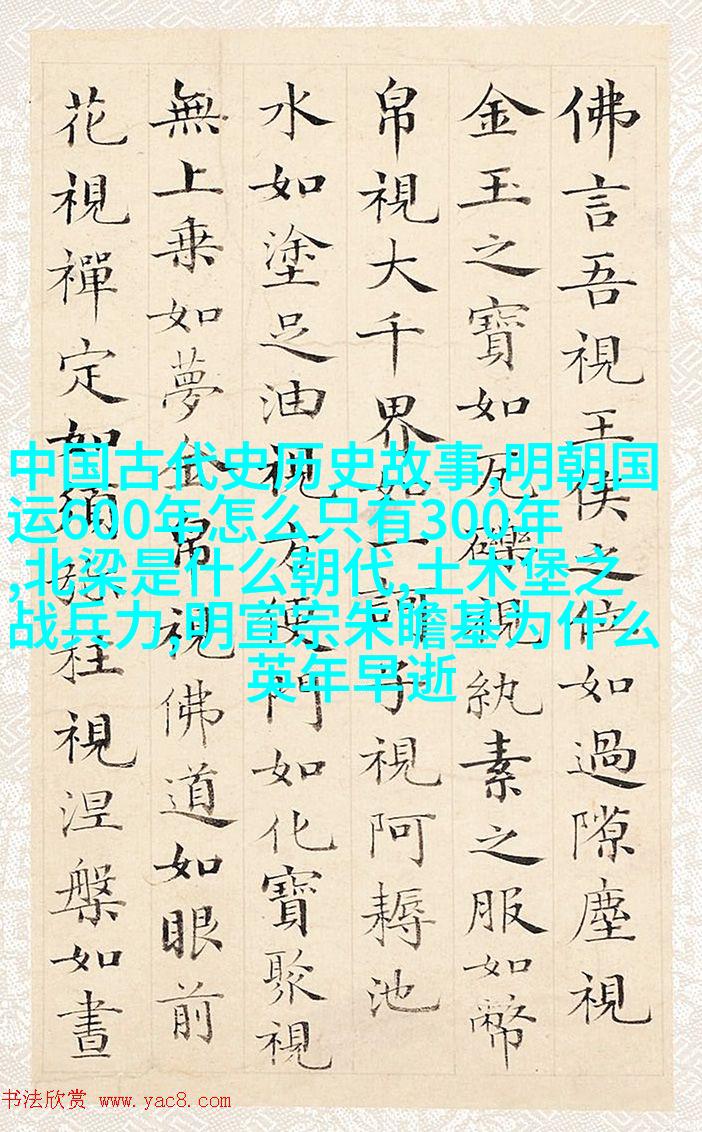 佛言吾視王侯之位如過隙塵視
金玉之寶如瓦礫視紈素之服如幣
帛視大千界如一訶子視阿耨池
水如塗足油視方便門如化寶聚視
無上乗如夢金帛視佛道如眼前
花視禪定如須弥柱視涅槃如晝
中国古代史历史故事,明朝国
运600年怎么只有300年
,北梁是什么朝代,土木堡之
战兵力,明宣宗朱瞻基为什么
英年早逝
书法欣赏 www.yac8.com